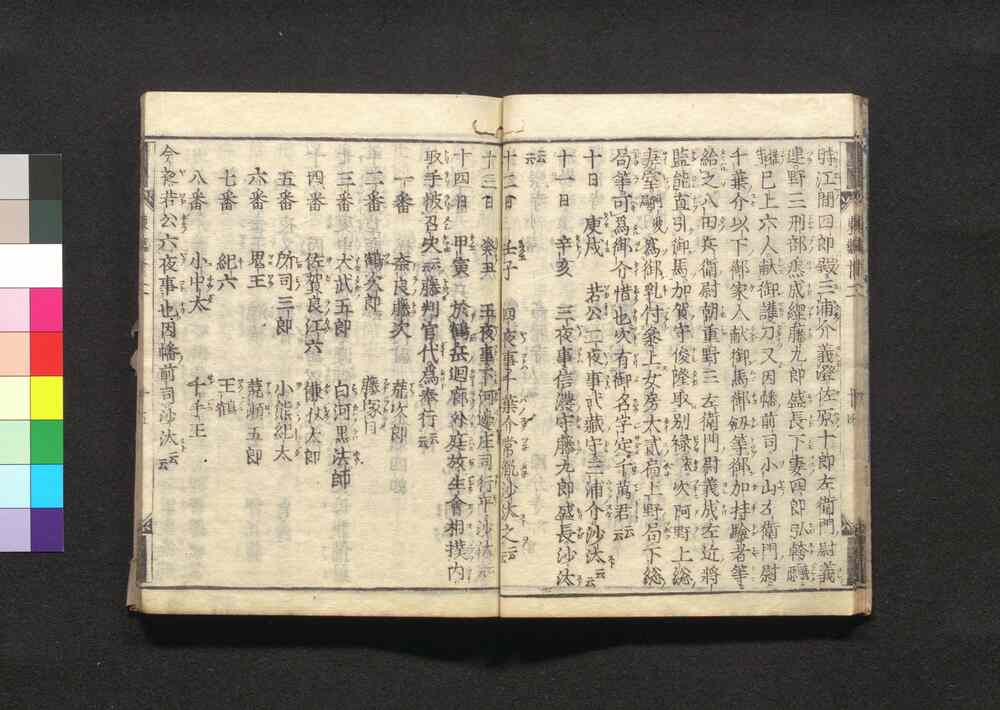 時江間四郎殿三浦介義澄佐原十郎左衛門尉義
連野三刑部丞成綱藤九郎盛長下妻四郎弘幹
已上六人献御護刀又因幡前司小山左衛門尉
千葉介以下御家人献御馬御劔等御加持驗者等
給之八田兵衛尉朝重野三左衛門尉義成左近將
監能直引御馬加賀守俊隆取別禄次阿野上総
妻室為御乳付参上女房大貳局上野局下総
局等可為御介惜也次有御名字定千萬君云云
十日 庚戌 若公二夜事武藏守三浦介沙汰云云
十一日 辛亥 三夜事信濃守藤九郎盛長沙汰
云云
十二日 壬子 四夜事千葉介常胤沙汰之云云
十三日 癸丑 五夜事下河邊庄司行平沙汰云云
十四日 甲寅 於鶴岳廻廊外庭放生會相撲内
取手被召决云云藤判官代為奉行云云
一番 奈良藤次 荒次郎
二番 鶴次郎 藤塚目
三番 犬武五郎 白河黒法師
四番 佐賀良江六 傔仗太郎
五番 所司三郎 小熊紀太
六番 鬼王 荒瀬五郎
七番 紀六 王鶴
八番 小中太 千手王
今夜若公六夜事也因幡前司沙汰云云